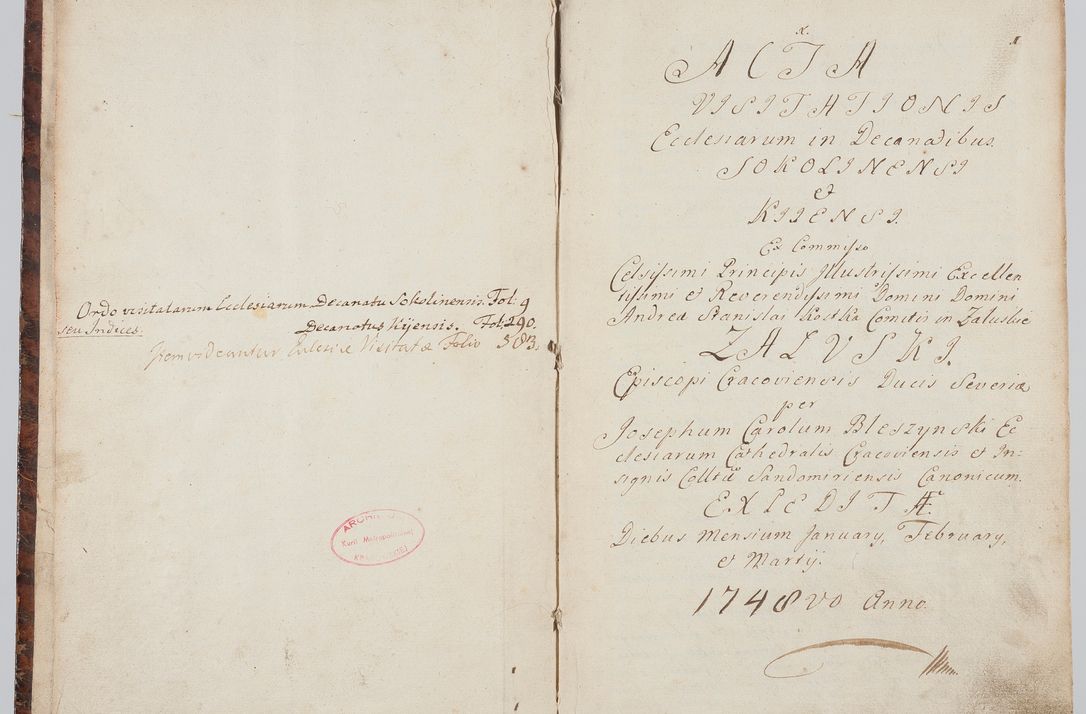 Ordo visitatarum Ecclesiarum Decanatu Sokolinensis. Fol: 9
seu Indices.
Decanatus Kijensis. Fol: 290.
Item videantur Eclesiæ Visitatæ Folio 583.
ARCHIWUM
Kurii Metropolitalnej
KRAKOWSKIEJ
1
x.
ACTA
VISITATIONIS
Ecclesiarum in Decanatibus
SOKOLINENSI
et
KIIENSI.
Ex Commisso
Celsissimi Principis Illustrissimi Excellen
tissimi et Reverendissimi Domini Domini
Andreæ Stanislai Kostka Comitis in Zaluskie
ZALUSKI.
Episcopi Cracoviensis Ducis Severiæ
per
Josephum Carolum Bleszynski Ec
clesiarum Cathedralis Cracoviensis et In:
signis Colltæ Sandomiriensis Canonicum.
EXPEDITÆ.
Diebus Mensium January, February,
et Martij.
1748vo Anno.